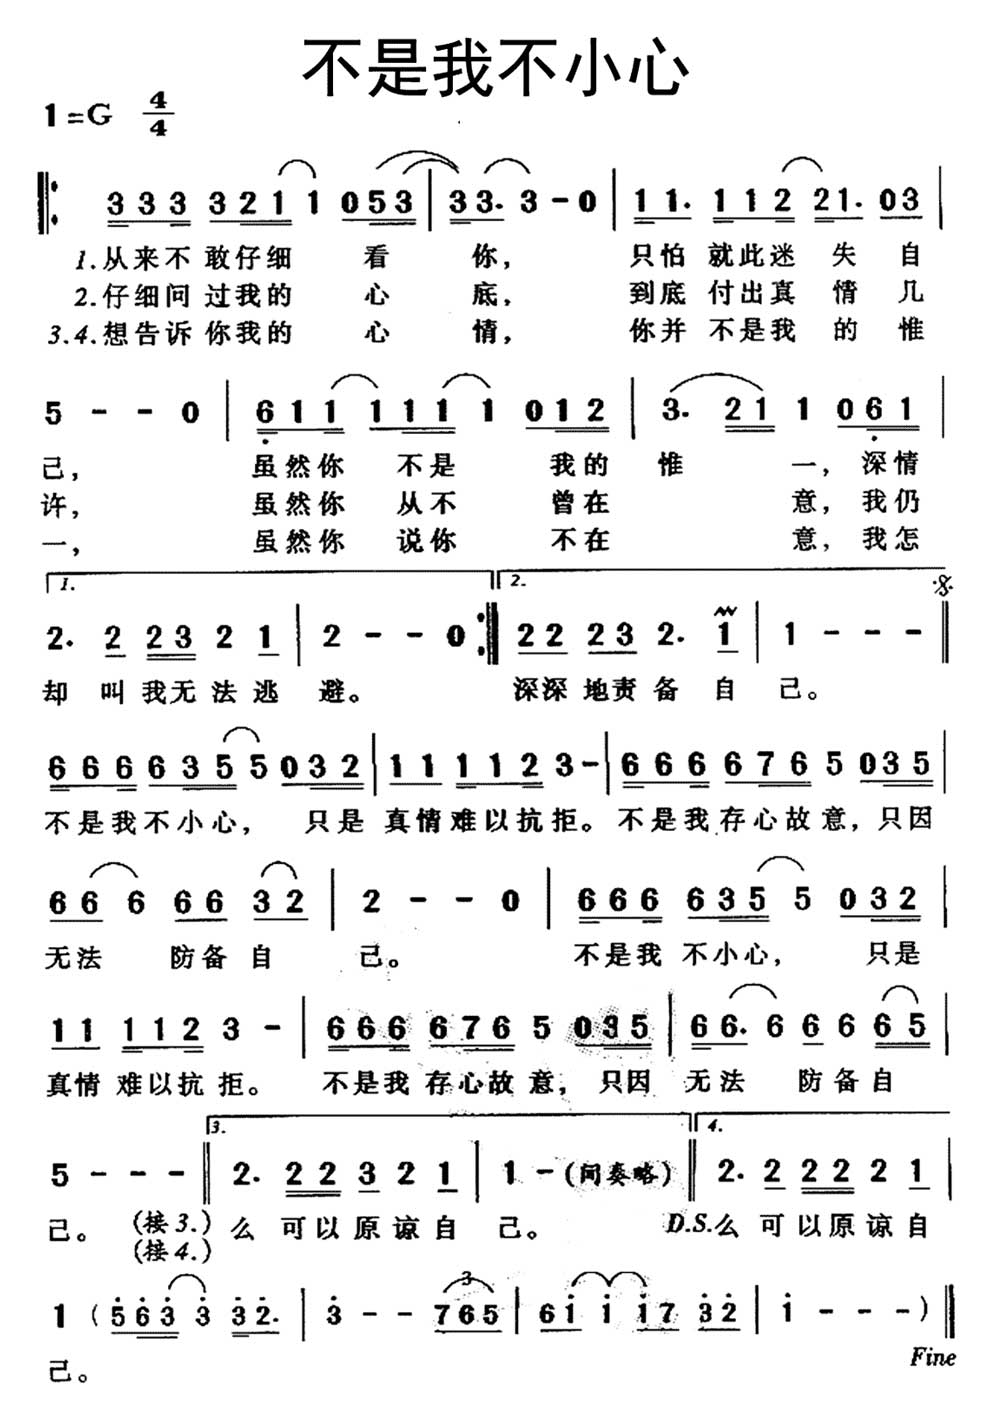 不是我不小心
1=G 4/4
3 3 3 3 2 1 1 0 5 3 | 3 3. 3 - 0 | 1 1. 1 1 2 2 1. 0 3 |
1.从来不 敢仔细 看 你, 只怕 就此迷 失 自
2.仔细问 过我的 心 底, 到底 付出真 情 几
3.4.想告诉 你我的 心 情, 你并 不是我 的 惟
5 - - 0 | 6 1 1 1 1 1 1 0 1 2 | 3. 2 1 1 0 6 1 |
己, 虽然你 不是 我的 惟 一, 深情
许, 虽然你 从不 曾在 意, 我仍
一, 虽然你 说你 不在 意, 我怎
1. 2.
2. 2 2 3 2 1 | 2 - - 0 :| 2 2 2 3 2. 1 | 1 - - - ||
却 叫 我无 法 逃 避。 深深 地责 备 自 己。
6 6 6 6 3 5 5 0 3 2 | 1 1 1 1 2 3 - | 6 6 6 6 7 6 5 0 3 5 |
不是我不小心, 只是 真情难以抗拒。不是我存心故意,只因
6 6 6 6 6 3 2 | 2 - - 0 | 6 6 6 6 3 5 5 0 3 2 |
无法 防备 自 己。 不是我 不小心, 只是
1 1 1 1 2 3 - | 6 6 6 6 7 6 5 0 3 5 | 6 6. 6 6 6 6 5 |
真情 难以抗 拒。 不是我 存心故 意, 只因 无 法 防备自
3. 4.
5 - - - || 2. 2 2 3 2 1 | 1 - (间奏略) || 2. 2 2 2 2 1 |
己。 (接3.) 么 可以原谅自 己。 D.S.么 可以原谅自
(接4.)
3
1 ( 5 6 3 3 3 2. | 3 - - 7 6 5 | 6 1 1 1 7 3 2 | 1 - - - ) ||
己。 Fine